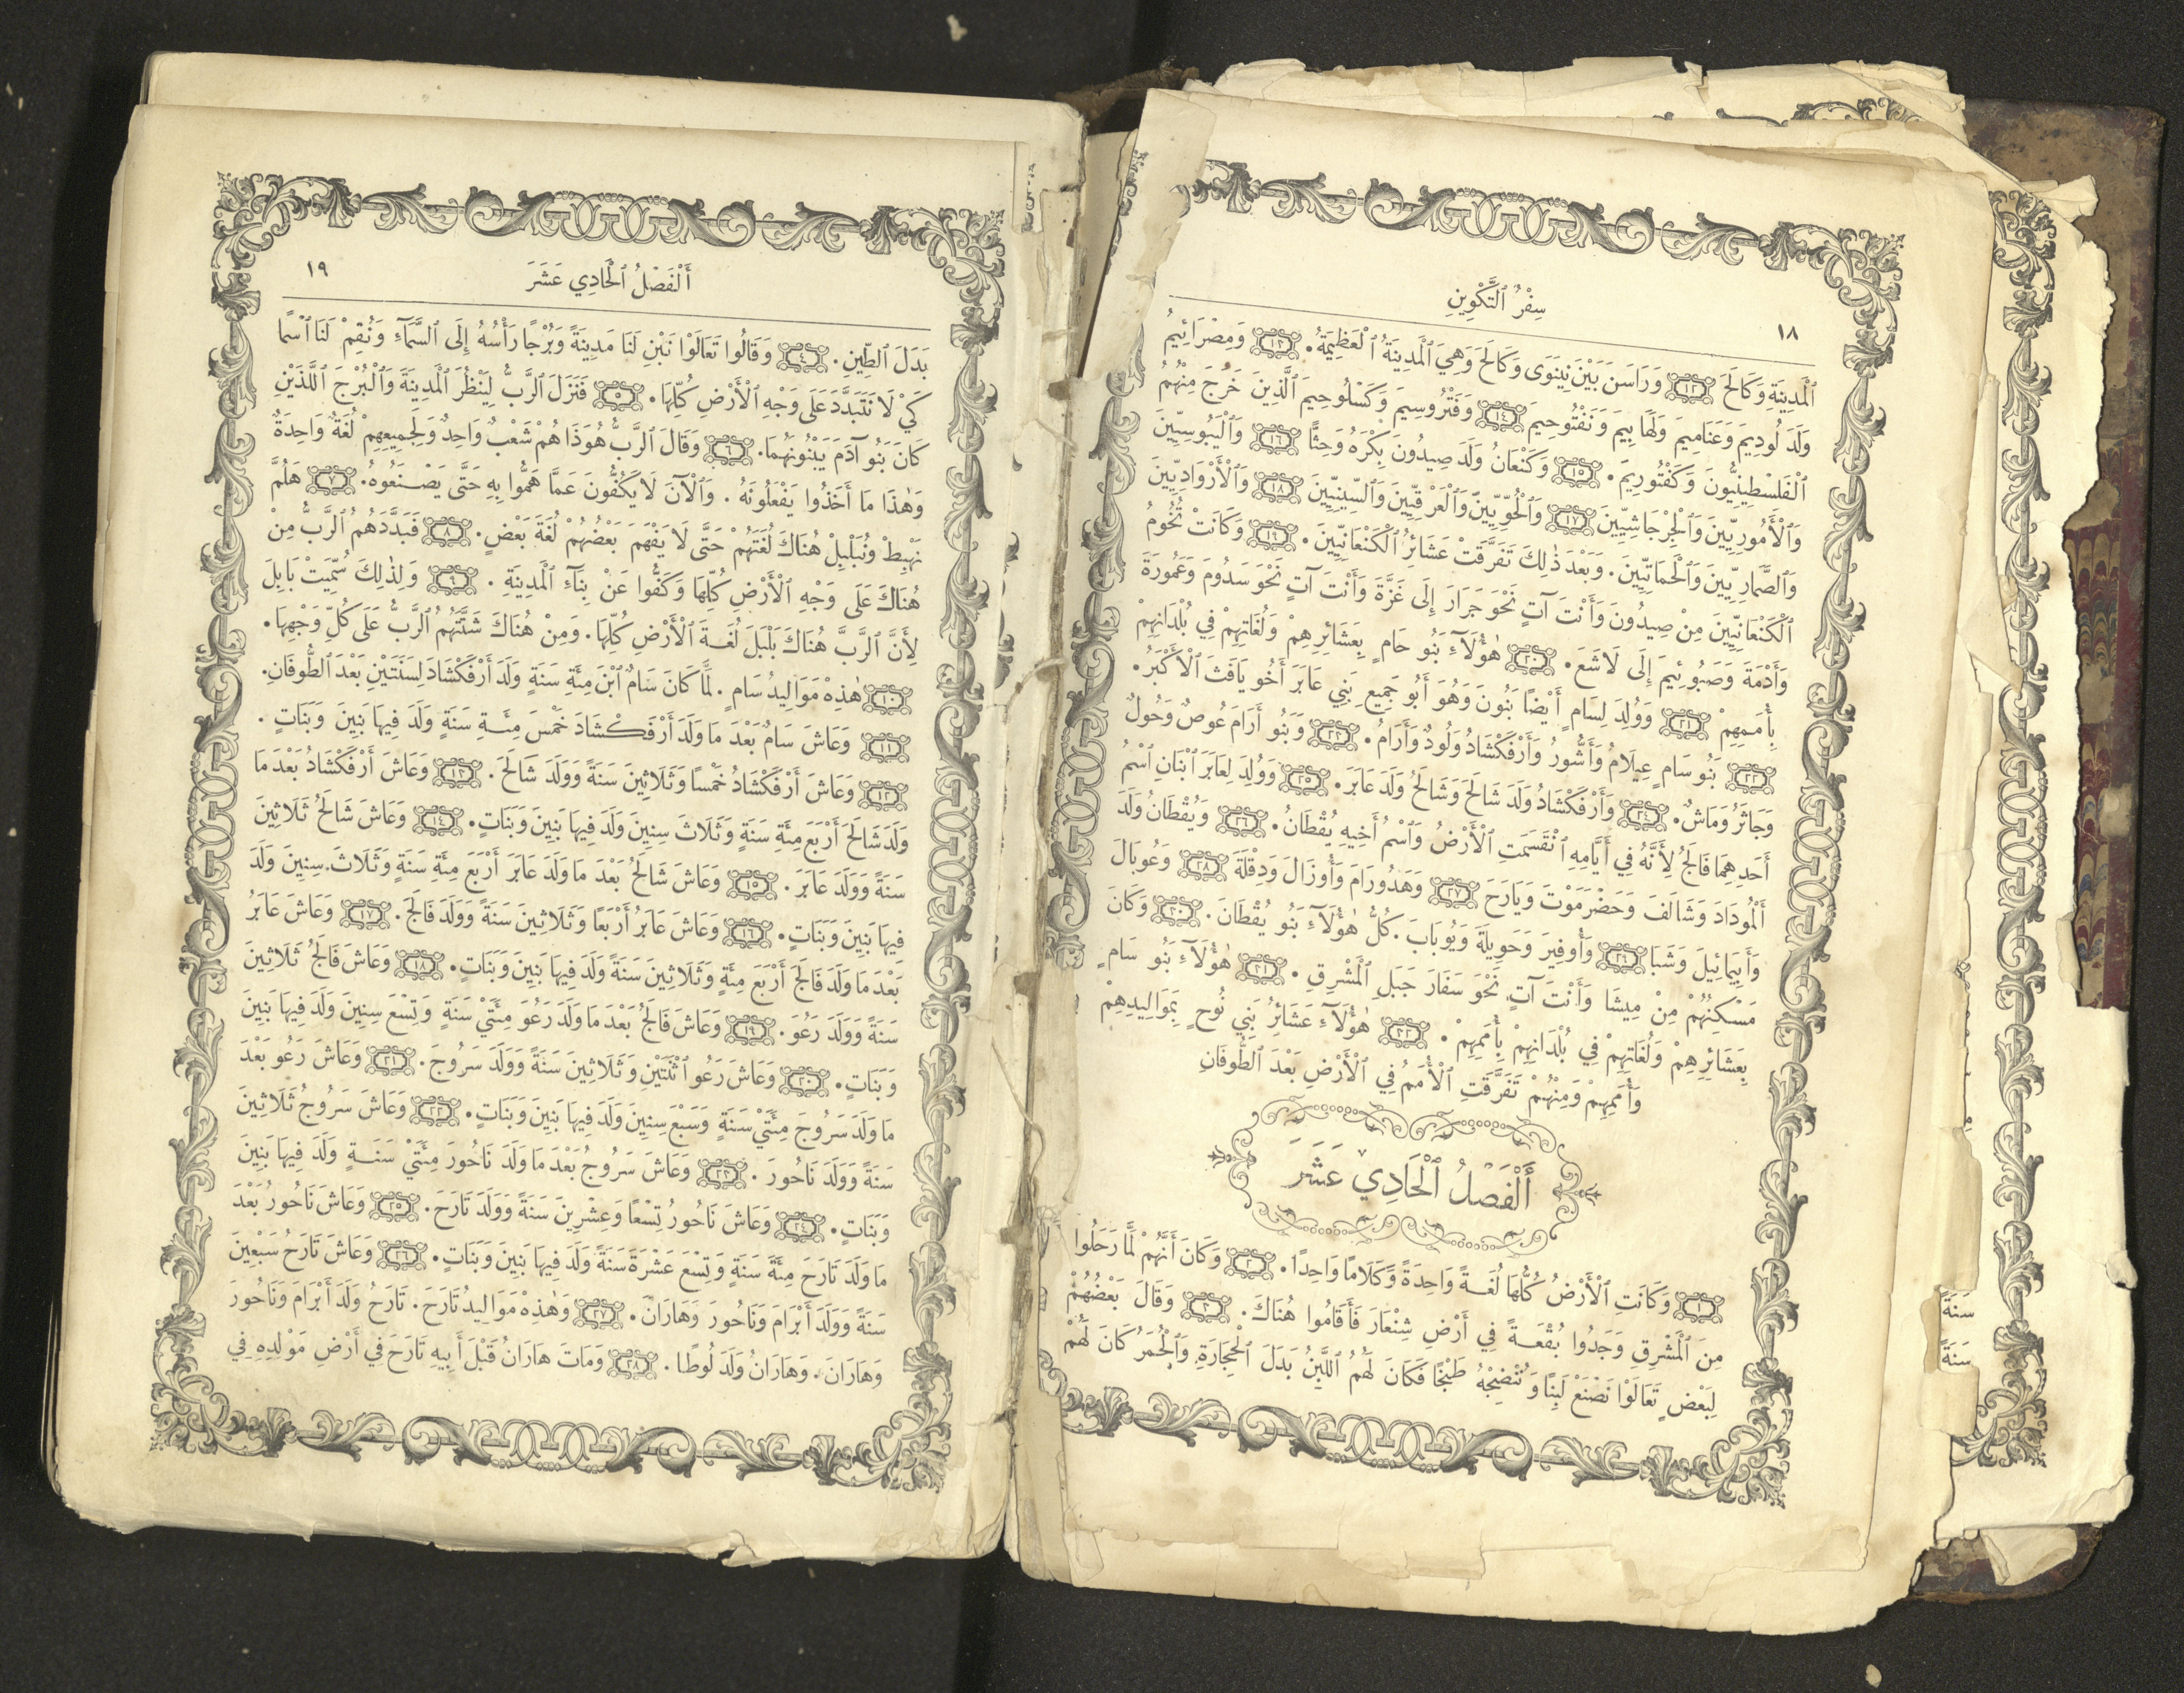 سِفْرُ ٱلتَّكْوِينِ
١٨
ٱلْمَدِينَةِ وَكَالَحَ ١٢ وَرَاسَنَ بَيْنَ نِينَوَى وَكَالَحَ وَهِيَ ٱلْمَدِينَةُ ٱلْعَظِيمَةُ. ١٣ وَمِصْرَائِيمُ
وَلَدَ لُودِيمَ وَعَنَامِيمَ وَلَهَابِيمَ وَنَفْتُوحِيمَ ١٤ وَفَتْرُوسِيمَ وَكَسْلُوحِيمَ ٱلَّذِينَ خَرَجَ مِنْهُمُ
ٱلْفَلَسْطِينِيُّونَ وَكَفْتُورِيمَ. ١٥ وَكَنْعَانُ وَلَدَ صِيدُونَ بِكْرَهُ وَحِثًّا ١٦ وَٱلْيَبُوسِيِّينَ
وَٱلْأَمُورِيِّينَ وَٱلْجِرْجَاشِيِّينَ ١٧ وَٱلْحُوِّيِّينَ وَٱلْعَرْقِيِّينَ وَٱلسِّينِيِّينَ ١٨ وَٱلْأَرْوَادِيِّينَ
وَٱلصَّمَارِيِّينَ وَٱلْحَمَاتِيِّينَ. وَبَعْدَ ذٰلِكَ تَفَرَّقَتْ عَشَائِرُ ٱلْكَنْعَانِيِّينَ. ١٩ وَكَانَتْ تُخُومُ
ٱلْكَنْعَانِيِّينَ مِنْ صِيدُونَ وَأَنْتَ آتٍ نَحْوَ جَرَارَ إِلَى غَزَّةَ وَأَنْتَ آتٍ نَحْوَ سَدُومَ وَعَمُورَةَ
وَأَدْمَةَ وَصَبُوئِيمَ إِلَى لَاشَعَ. ٢٠ هٰؤُلَآءِ بَنُو حَامٍ بِعَشَائِرِهِمْ وَلُغَاتِهِمْ فِي بُلْدَانِهِمْ
بِأُمَمِهِمْ ٢١ وَوُلِدَ لِسَامٍ أَيْضًا بَنُونَ وَهُوَ أَبُو جَمِيعِ بَنِي عَابَرَ أَخُو يَافَثَ ٱلْأَكْبَرُ.
٢٢ بَنُو سَامٍ عِيلَامُ وَأَشُّورُ وَأَرْفَكْشَادُ وَلُودُ وَأَرَامُ. ٢٣ وَبَنُو أَرَامَ عُوصٌ وَحُولٌ
وَجَاثَرُ وَمَاشٌ. ٢٤ وَأَرْفَكْشَادُ وَلَدَ شَالَحَ وَشَالَحُ وَلَدَ عَابَرَ. ٢٥ وَوُلِدَ لِعَابَرَ ٱبْنَانِ ٱسْمُ
أَحَدِهِمَا فَالَجُ لِأَنَّهُ فِي أَيَّامِهِ ٱنْقَسَمَتِ ٱلْأَرْضُ وَٱسْمُ أَخِيهِ يُقْطَانُ. ٢٦ وَيُقْطَانُ وَلَدَ
أَلْمُودَادَ وَشَالَفَ وَحَضْرَمَوْتَ وَيَارَحَ ٢٧ وَهَدُورَامَ وَأُوزَالَ وَدِقْلَةَ ٢٨ وَعُوبَالَ
وَأَبِيمَائِيلَ وَشَبَا ٢٩ وَأُوفِيرَ وَحَوِيلَةَ وَيُوبَابَ. كُلُّ هٰؤُلَآءِ بَنُو يُقْطَانَ. ٣٠ وَكَانَ
مَسْكِنُهُمْ مِنْ مِيشَا وَأَنْتَ آتٍ نَحْوَ سَفَارَ جَبَلِ ٱلْمَشْرِقِ. ٣١ هٰؤُلَآءِ بَنُو سَامٍ
بِعَشَائِرِهِمْ وَلُغَاتِهِمْ فِي بُلْدَانِهِمْ بِأُمَمِهِمْ. ٣٢ هٰؤُلَآءِ عَشَائِرُ بَنِي نُوحٍ بِمَوَالِيدِهِمْ
وَأُمَمِهِمْ وَمِنْهُمْ تَفَرَّقَتِ ٱلْأُمَمُ فِي ٱلْأَرْضِ بَعْدَ ٱلطُّوفَانِ
أَلْفَصْلُ ٱلْحَادِي عَشَرَ
١ وَكَانَتِ ٱلْأَرْضُ كُلُّهَا لُغَةً وَاحِدَةً وَكَلَامًا وَاحِدًا. ٢ وَكَانَ أَنَّهُمْ لَمَّا رَحَلُوا
مِنَ ٱلْمَشْرِقِ وَجَدُوا بُقْعَةً فِي أَرْضِ شِنْعَارَ فَأَقَامُوا هُنَاكَ. ٣ وَقَالَ بَعْضُهُمْ
لِبَعْضٍ تَعَالَوْا نَصْنَعْ لَبِنًا وَنُنْضِجْهُ طَبْخًا فَكَانَ لَهُمُ ٱللَّبِنُ بَدَلَ ٱلْحِجَارَةِ وَٱلْحُمَرُ كَانَ لَهُمْ
سَنَةً
سَنَةً
أَلْفَصْلُ ٱلْحَادِي عَشَرَ
١٩
بَدَلَ ٱلطِّينِ. ٤ وَقَالُوا تَعَالَوْا نَبْنِ لَنَا مَدِينَةً وَبُرْجًا رَأْسُهُ إِلَى ٱلسَّمَآءِ وَنُقِمْ لَنَا ٱسْمًا
كَيْ لَا نَتَبَدَّدَ عَلَى وَجْهِ ٱلْأَرْضِ كُلِّهَا. ٥ فَنَزَلَ ٱلرَّبُّ لِيَنْظُرَ ٱلْمَدِينَةَ وَٱلْبُرْجَ ٱللَّذَيْنِ
كَانَ بَنُو آدَمَ يَبْنُونَهُمَا. ٦ وَقَالَ ٱلرَّبُّ هُوَذَا هُمْ شَعْبٌ وَاحِدٌ وَلِجَمِيعِهِمْ لُغَةٌ وَاحِدَةٌ
وَهٰذَا مَا أَخَذُوا يَفْعَلُونَهُ. وَٱلْآنَ لَا يَكُفُّونَ عَمَّا هَمُّوا بِهِ حَتَّى يَصْنَعُوهُ. ٧ هَلُمَّ
نَهْبِطْ وَنُبَلْبِلْ هُنَاكَ لُغَتَهُمْ حَتَّى لَا يَفْهَمَ بَعْضُهُمْ لُغَةَ بَعْضٍ. ٨ فَبَدَّدَهُمُ ٱلرَّبُّ مِنْ
هُنَاكَ عَلَى وَجْهِ ٱلْأَرْضِ كُلِّهَا وَكَفُّوا عَنْ بِنَآءِ ٱلْمَدِينَةِ. ٩ وَلِذٰلِكَ سُمِّيَتْ بَابِلَ
لِأَنَّ ٱلرَّبَّ هُنَاكَ بَلْبَلَ لُغَةَ ٱلْأَرْضِ كُلِّهَا. وَمِنْ هُنَاكَ شَتَّتَهُمُ ٱلرَّبُّ عَلَى كُلِّ وَجْهِهَا.
١٠ هٰذِهْ مَوَالِيدُ سَامٍ. لَمَّا كَانَ سَامٌ ٱبْنَ مِئَةِ سَنَةٍ وَلَدَ أَرْفَكْشَادَ لِسَنَتَيْنِ بَعْدَ ٱلطُّوفَانِ.
١١ وَعَاشَ سَامٌ بَعْدَ مَا وَلَدَ أَرْفَكْشَادَ خَمْسَ مِئَةِ سَنَةٍ وَلَدَ فِيهَا بَنِينَ وَبَنَاتٍ.
١٢ وَعَاشَ أَرْفَكْشَادُ خَمْسًا وَثَلَاثِينَ سَنَةً وَوَلَدَ شَالَحَ. ١٣ وَعَاشَ أَرْفَكْشَادُ بَعْدَ مَا
وَلَدَ شَالَحَ أَرْبَعَ مِئَةِ سَنَةٍ وَثَلَاثَ سِنِينَ وَلَدَ فِيهَا بَنِينَ وَبَنَاتٍ. ١٤ وَعَاشَ شَالَحُ ثَلَاثِينَ
سَنَةً وَوَلَدَ عَابَرَ. ١٥ وَعَاشَ شَالَحُ بَعْدَ مَا وَلَدَ عَابَرَ أَرْبَعَ مِئَةِ سَنَةٍ وَثَلَاثَ سِنِينَ وَلَدَ
فِيهَا بَنِينَ وَبَنَاتٍ. ١٦ وَعَاشَ عَابَرُ أَرْبَعًا وَثَلَاثِينَ سَنَةً وَوَلَدَ فَالَجَ. ١٧ وَعَاشَ عَابَرُ
بَعْدَ مَا وَلَدَ فَالَجَ أَرْبَعَ مِئَةٍ وَثَلَاثِينَ سَنَةً وَلَدَ فِيهَا بَنِينَ وَبَنَاتٍ. ١٨ وَعَاشَ فَالَجُ ثَلَاثِينَ
سَنَةً وَوَلَدَ رَعُوَ. ١٩ وَعَاشَ فَالَجُ بَعْدَ مَا وَلَدَ رَعُوَ مِئَتَيْ سَنَةٍ وَتِسْعَ سِنِينَ وَلَدَ فِيهَا بَنِينَ
وَبَنَاتٍ. ٢٠ وَعَاشَ رَعُو ٱثْنَتَيْنِ وَثَلَاثِينَ سَنَةً وَوَلَدَ سَرُوجَ. ٢١ وَعَاشَ رَعُو بَعْدَ
مَا وَلَدَ سَرُوجَ مِئَتَيْ سَنَةٍ وَسَبْعَ سِنِينَ وَلَدَ فِيهَا بَنِينَ وَبَنَاتٍ. ٢٢ وَعَاشَ سَرُوجُ ثَلَاثِينَ
سَنَةً وَوَلَدَ نَاحُورَ. ٢٣ وَعَاشَ سَرُوجُ بَعْدَ مَا وَلَدَ نَاحُورَ مِئَتَيْ سَنَةٍ وَلَدَ فِيهَا بَنِينَ
وَبَنَاتٍ. ٢٤ وَعَاشَ نَاحُورُ تِسْعًا وَعِشْرِينَ سَنَةً وَوَلَدَ تَارَحَ. ٢٥ وَعَاشَ نَاحُورُ بَعْدَ
مَا وَلَدَ تَارَحَ مِئَةَ سَنَةٍ وَتِسْعَ عَشْرَةَ سَنَةً وَلَدَ فِيهَا بَنِينَ وَبَنَاتٍ. ٢٦ وَعَاشَ تَارَحُ سَبْعِينَ
سَنَةً وَوَلَدَ أَبْرَامَ وَنَاحُورَ وَهَارَانَ. ٢٧ وَهٰذِهْ مَوَالِيدُ تَارَحَ. تَارَحُ وَلَدَ أَبْرَامَ وَنَاحُورَ
وَهَارَانَ. وَهَارَانُ وَلَدَ لُوطًا. ٢٨ وَمَاتَ هَارَانُ قَبْلَ أَبِيهِ تَارَحَ فِي أَرْضِ مَوْلِدِهِ فِي